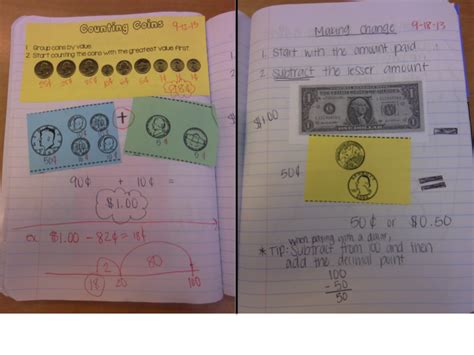 Counting Coins 9-17-13
1. Group coins by value.
2. Start counting the coins with the greatest value first.
25¢ 25¢ 25¢ 10¢
50¢
+
5¢
90¢ + 10¢ =
$1.00
$1.00 - 82¢ = 18¢
2 80
18 20 100
Making Change 9-18-13
1. Start with the amount paid
2. Subtract the lesser amount
$1.00
50¢
=
50¢ or $0.50
when paying with a dollar,
* TIP: Subtract from 100 and then
add the decimal point
100
- 50
50